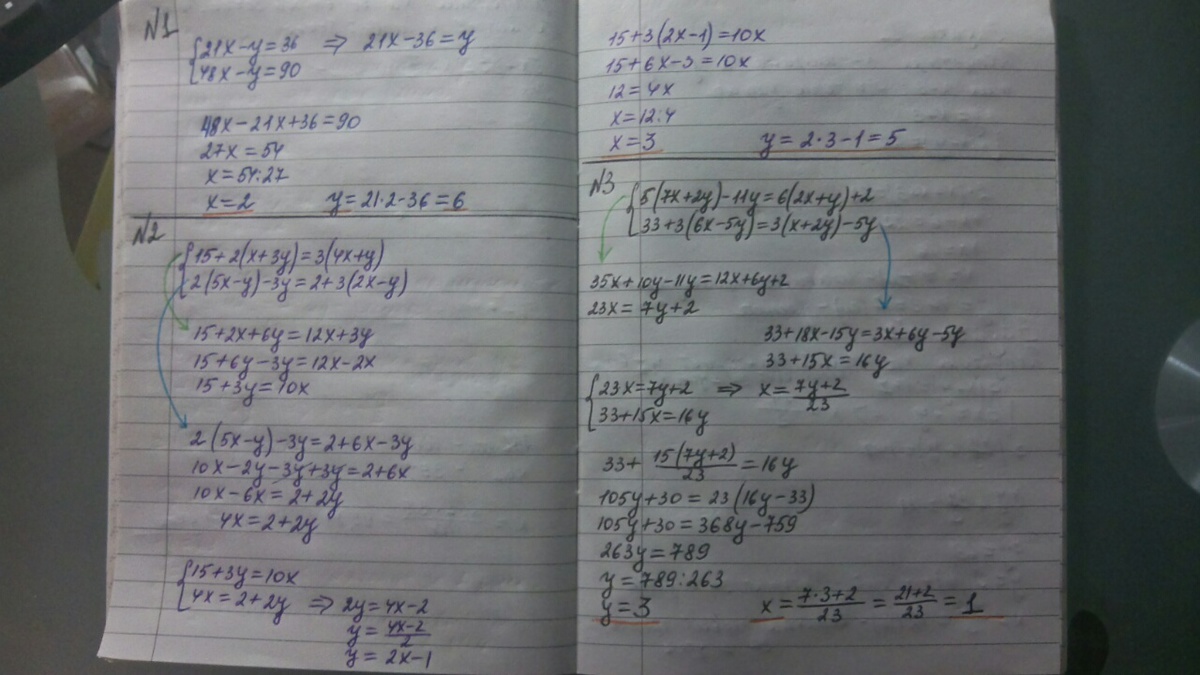 №1
{21x-y=36 ⇒ 21x-36=y
{48x-y=90
48x-21x+36=90
27x=54
x=54:27
x=2 y=21·2-36=6
№2
{15+2(x+3y)=3(4x+y)
{2(5x-y)-3y=2+3(2x-y)
15+2x+6y=12x+3y
15+6y-3y=12x-2x
15+3y=10x
2(5x-y)-3y=2+6x-3y
10x-2y-3y+3y=2+6x
10x-6x=2+2y
4x=2+2y
{15+3y=10x
{4x=2+2y ⇒ 2y=4x-2
y=\frac{4x-2}{2}
y=2x-1
15+3(2x-1)=10x
15+6x-3=10x
12=4x
x=12:4
x=3 y=2·3-1=5
№3
{5(7x+2y)-11y=6(2x+y)+2
{33+3(6x-5y)=3(x+2y)-5y
35x+10y-11y=12x+6y+2
23x=7y+2
33+18x-15y=3x+6y-5y
33+15x=16y
{23x=7y+2 ⇒ x=\frac{7y+2}{23}
{33+15x=16y
33+\frac{15(7y+2)}{23}=16y
105y+30=23(16y-33)
105y+30=368y-759
263y=789
y=789:263
y=3 x=\frac{7·3+2}{23}=\frac{21+2}{23}=1